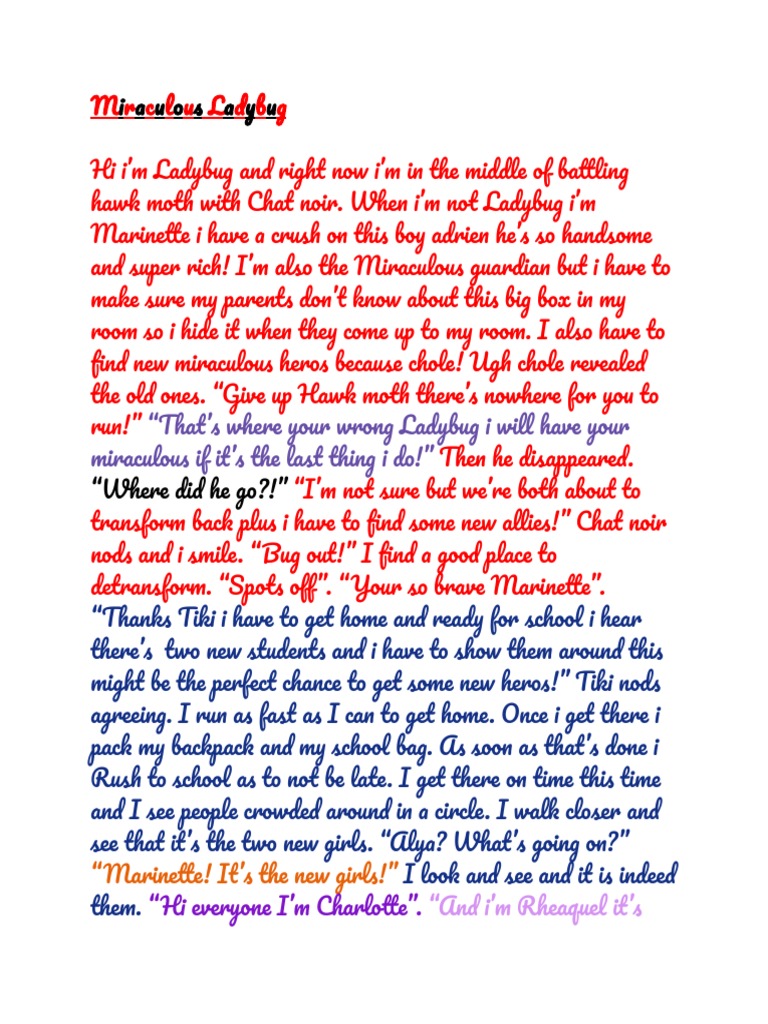 Miraculous Ladybug
Hi i'm Ladybug and right now i'm in the middle of battling
hawk moth with Chat noir. When i'm not Ladybug i'm
Marinette i have a crush on this boy adrien he's so handsome
and super rich! I'm also the Miraculous guardian but i have to
make sure my parents don't know about this big box in my
room so i hide it when they come up to my room. I also have to
find new miraculous heros because chole! Ugh chole revealed
the old ones. “Give up Hawk moth there's nowhere for you to
run!” “That's where your wrong Ladybug i will have your
miraculous if it's the last thing i do!” Then he disappeared.
“Where did he go?!” “I'm not sure but we're both about to
transform back plus i have to find some new allies!” Chat noir
nods and i smile. “Bug out!” I find a good place to
detransform. “Spots off”. “Your so brave Marinette”.
“Thanks Tiki i have to get home and ready for school i hear
there's  two new students and i have to show them around this
might be the perfect chance to get some new heros!” Tiki nods
agreeing. I run as fast as I can to get home. Once i get there i
pack my backpack and my school bag. As soon as that's done i
Rush to school as to not be late. I get there on time this time
and I see people crowded around in a circle. I walk closer and
see that it's the two new girls. “Alya? What's going on?”
“Marinette! It's the new girls!” I look and see and it is indeed
them. “Hi everyone I'm Charlotte”. “And i'm Rheaquel it's